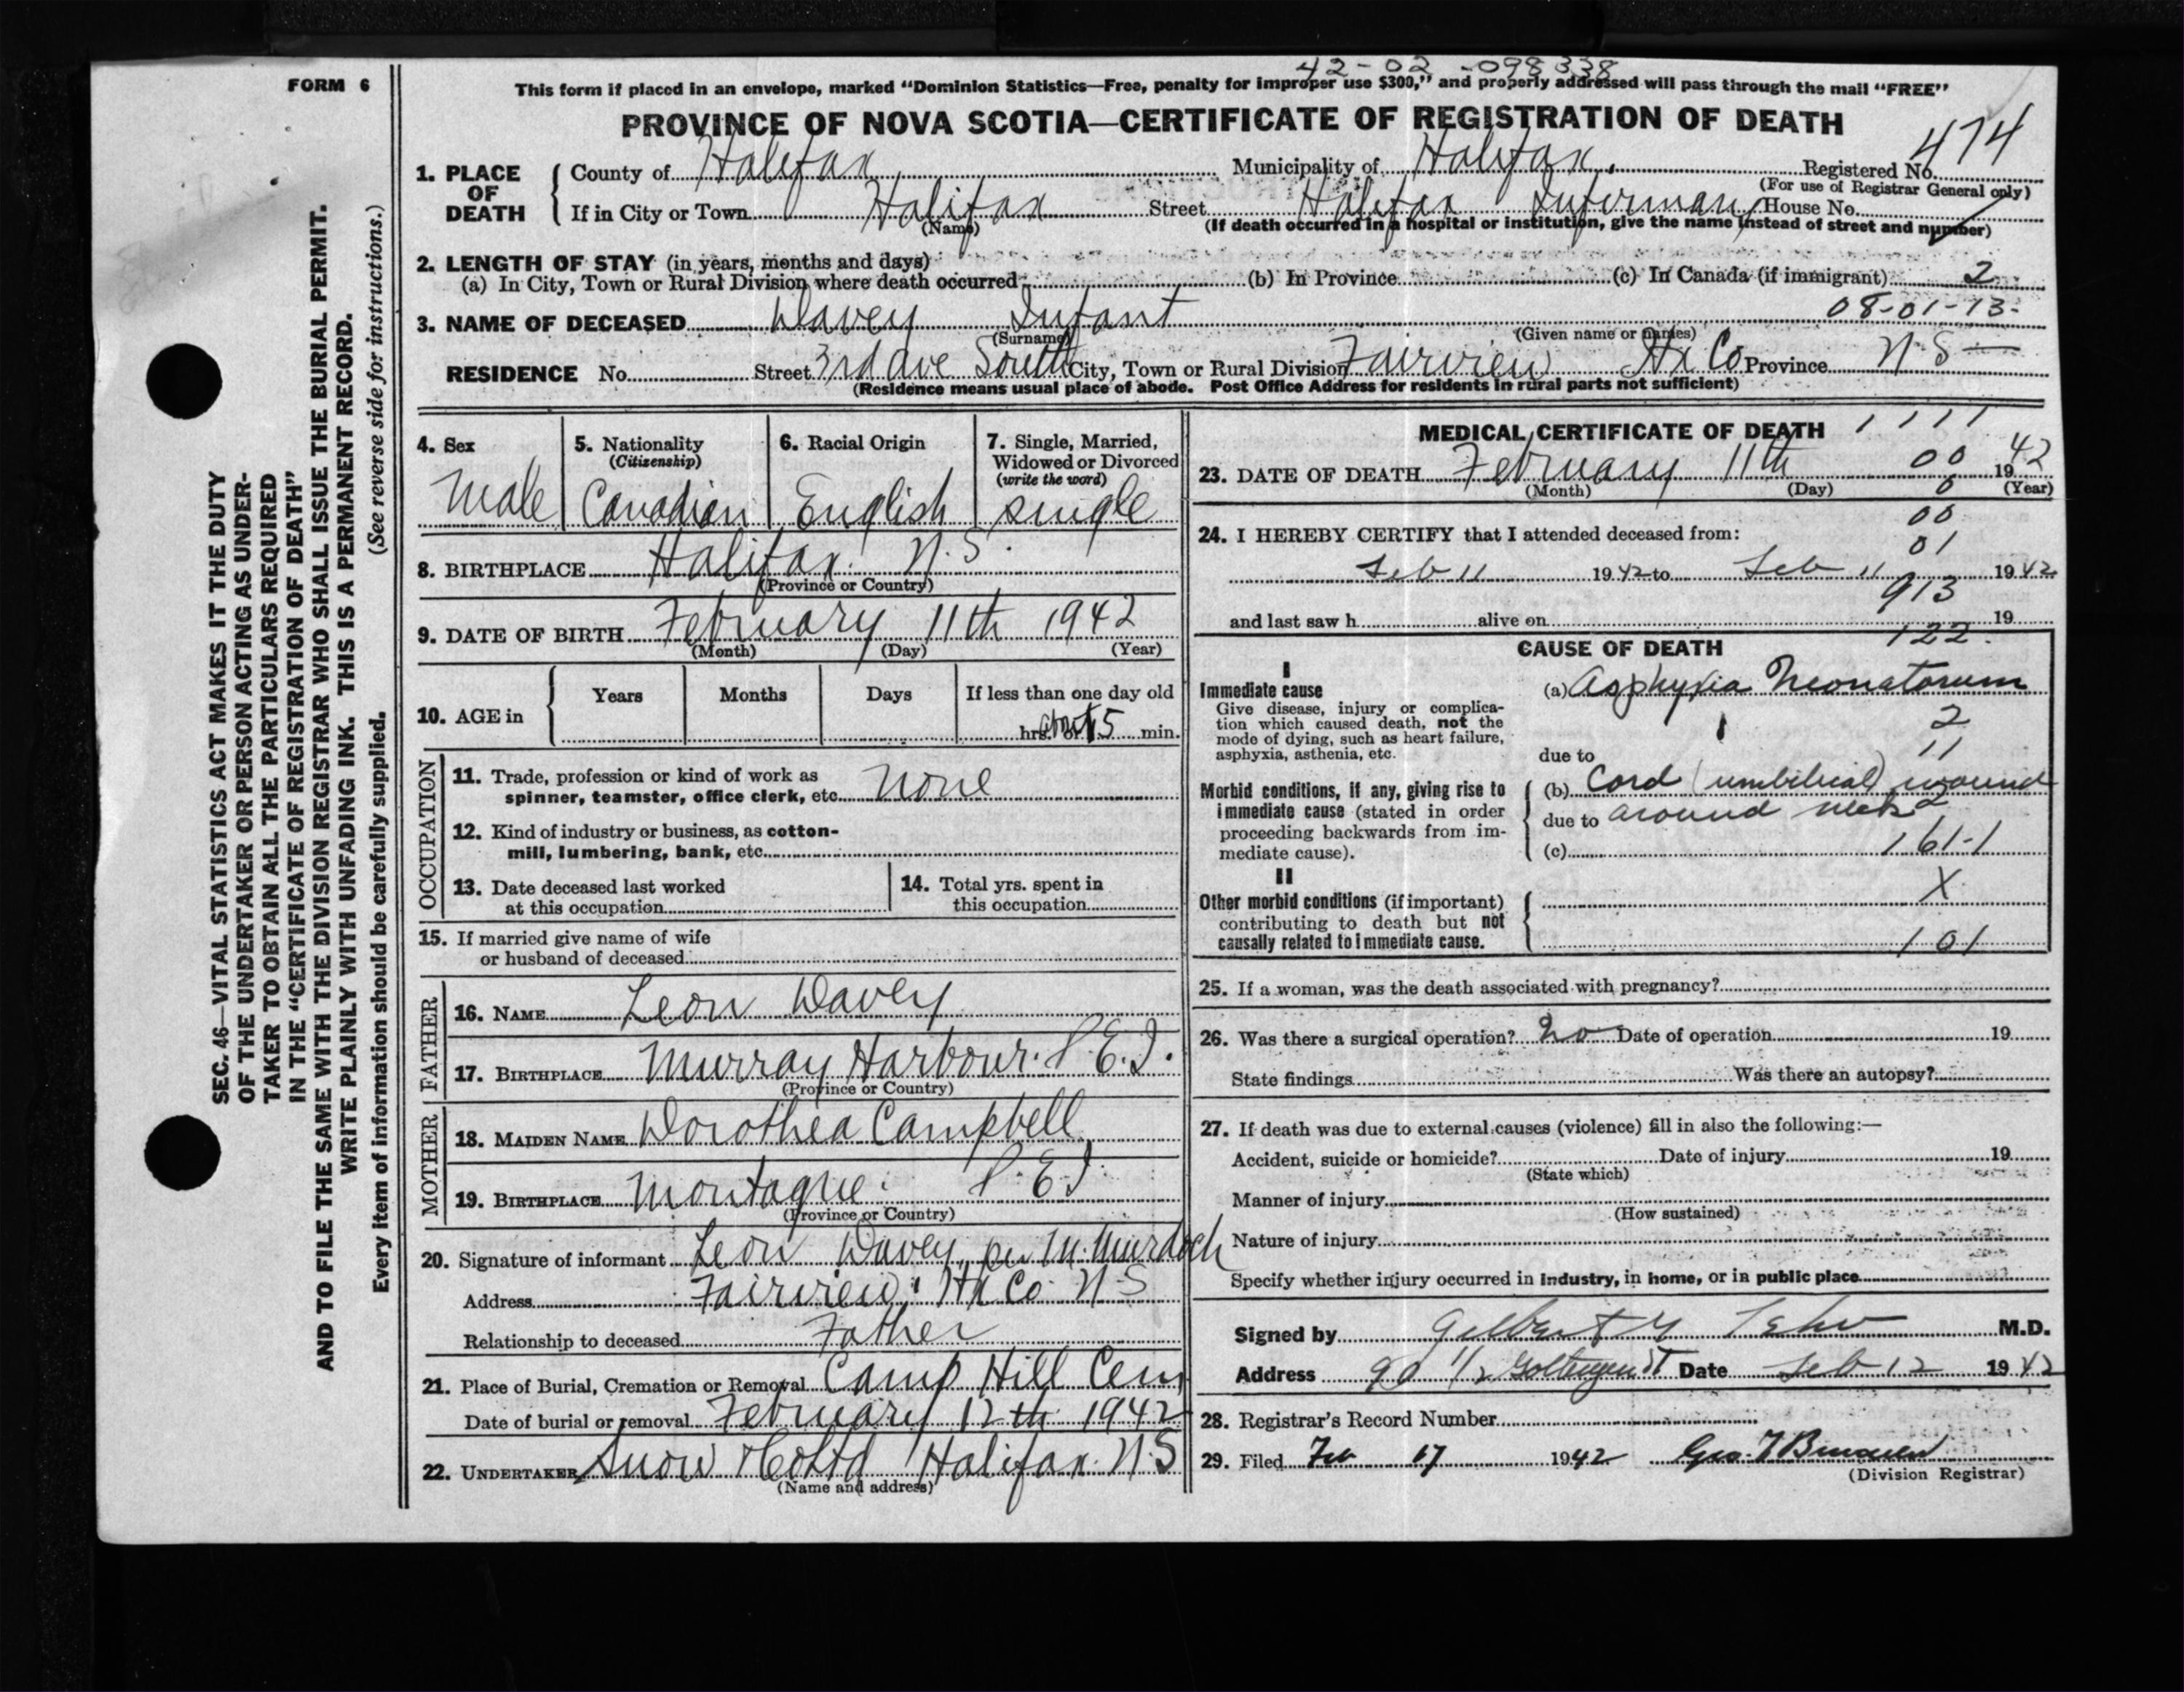 42-02-098338
FORM 6
This form if placed in an envelope, marked "Dominion Statistics—Free, penalty for improper use $300," and properly addressed will pass through the mail "FREE"
PROVINCE OF NOVA SCOTIA—CERTIFICATE OF REGISTRATION OF DEATH
474
1. PLACE OF DEATH { County of Halifax Municipality of Halifax. Registered No.
(For use of Registrar General only)
If in City or Town Halifax Street Halifax Infirmary House No.
(Name) (If death occurred in a hospital or institution, give the name instead of street and number)
2. LENGTH OF STAY (in years, months and days)
(a) In City, Town or Rural Division where death occurred (b) In Province (c) In Canada (if immigrant) 2
08-01-13-
3. NAME OF DECEASED Davey Infant
(Surname) (Given name or names)
RESIDENCE No. Street 3rd Ave South City, Town or Rural Division Fairview Hx Co Province N S —
(Residence means usual place of abode. Post Office Address for residents in rural parts not sufficient)
4. Sex 5. Nationality 6. Racial Origin 7. Single, Married,
(Citizenship) Widowed or Divorced
(write the word)
Male Canadian English single
8. BIRTHPLACE Halifax. N.S.
(Province or Country)
9. DATE OF BIRTH February 11th 1942
(Month) (Day) (Year)
10. AGE in { Years Months Days If less than one day old
hrs. or about 5 min.
OCCUPATION
11. Trade, profession or kind of work as
spinner, teamster, office clerk, etc. None
12. Kind of industry or business, as cotton-
mill, lumbering, bank, etc.
13. Date deceased last worked
at this occupation
14. Total yrs. spent in
this occupation
15. If married give name of wife
or husband of deceased
FATHER
16. NAME Leon Davey
17. BIRTHPLACE Murray Harbour. P.E.I.
(Province or Country)
MOTHER
18. MAIDEN NAME Dorothea Campbell
19. BIRTHPLACE Montague. P.E.I.
(Province or Country)
20. Signature of informant Leon Davey, per M. Murdoch
Address Fairview, Hx Co N S
Relationship to deceased Father
21. Place of Burial, Cremation or Removal Camp Hill Cem
Date of burial or removal February 12th 1942
22. UNDERTAKER Snow & Co Ltd Halifax. N.S
(Name and address)
MEDICAL CERTIFICATE OF DEATH 1 1 1 1
23. DATE OF DEATH February 11th 00 1942
(Month) (Day) 0 (Year)
00
24. I HEREBY CERTIFY that I attended deceased from:
01
Feb 11 1942 to Feb 11 1942
913
and last saw h alive on 19
122.
CAUSE OF DEATH
I
Immediate cause (a) Asphyxia Neonatorum
Give disease, injury or complica-
tion which caused death, not the
mode of dying, such as heart failure,
asphyxia, asthenia, etc.
2
due to 11
Morbid conditions, if any, giving rise to
immediate cause (stated in order
proceeding backwards from im-
mediate cause).
(b) Cord (umbilical) wound
due to around neck 2
(c) 161-1
II
Other morbid conditions (if important)
contributing to death but not
causally related to immediate cause.
X
101
25. If a woman, was the death associated with pregnancy?
26. Was there a surgical operation? no Date of operation 19
State findings Was there an autopsy?
27. If death was due to external causes (violence) fill in also the following:—
Accident, suicide or homicide? Date of injury 19
(State which)
Manner of injury
(How sustained)
Nature of injury
Specify whether injury occurred in industry, in home, or in public place
Signed by Gilbert M.D.
Address 90 1/2 Gottingen St Date Feb 12 1942
28. Registrar's Record Number
29. Filed Feb 17 1942 Geo.
(Division Registrar)
SEC. 46—VITAL STATISTICS ACT MAKES IT THE DUTY
OF THE UNDERTAKER OR PERSON ACTING AS UNDER-
TAKER TO OBTAIN ALL THE PARTICULARS REQUIRED
IN THE "CERTIFICATE OF REGISTRATION OF DEATH"
AND TO FILE THE SAME WITH THE DIVISION REGISTRAR WHO SHALL ISSUE THE BURIAL PERMIT.
WRITE PLAINLY WITH UNFADING INK. THIS IS A PERMANENT RECORD.
Every item of information should be carefully supplied. (See reverse side for instructions.)